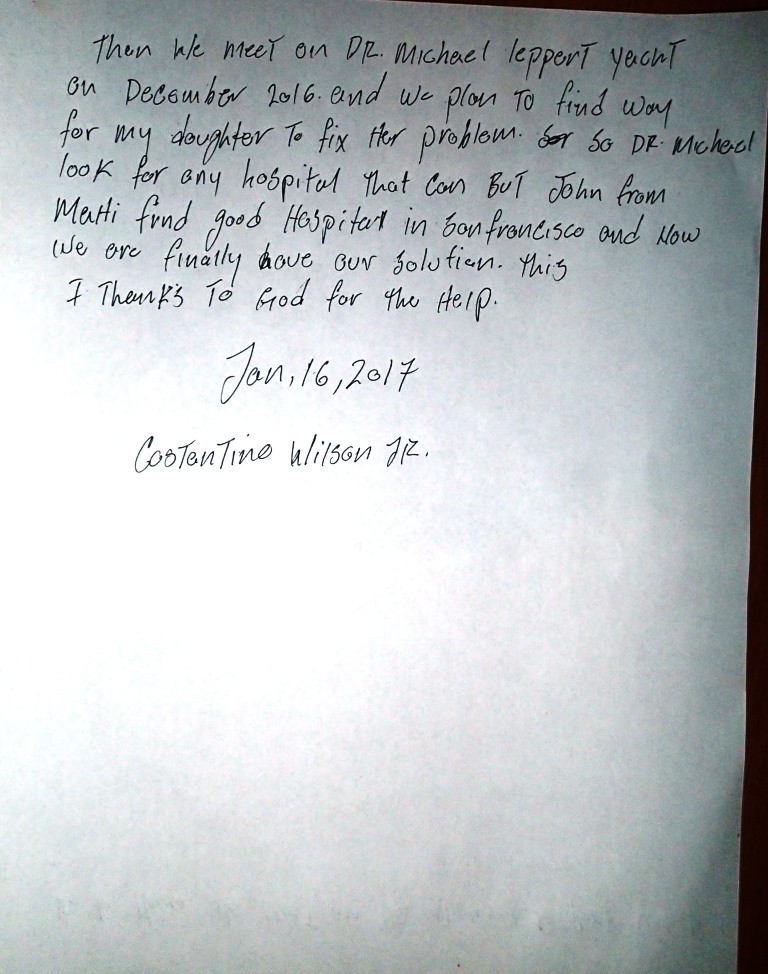 Then We meet on DR. Michael leppert yacht
on December 2016. and we plan To find way
for my doughter To fix Her problem. So DR. Michael
look for any hospital that can But John from
find good Hospital in Sanfrancisco and Now
We are finally have our solution. this
I Thanks To God for the Help.
Jan, 16, 2017
Costantino Wilson JR.